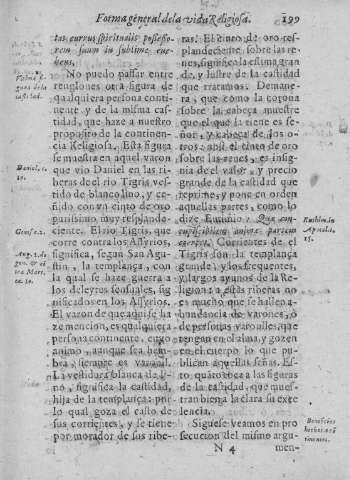 Forma general de la vida Religiosa. 199
tas currus spiritualis possesso-
rem suum in sublime eue-
hens.
No puedo passar entre
renglones otra figura de
qualquiera persona conti-
nente, y de la misma cas-
tidad, que haze a nuestro
proposito de la continen-
cia Religiosa. Esta figura
se muestra en aquel varon
que vio Daniel en las ri-
beras de el rio Tigris ves-
tido de blanco lino, y ce-
ñido con vn cinto de oro
purissimo muy resplande-
ciente. El rio Tigris, que
corre contra los Assyrios,
significa, segun San Agu-
stin, la templança, con
la qual se haze guerra a
los deleytes sensuales, sig
nificados en los Assyrios.
El varon de que aqui se ha
ze mencion, es qualquiera
persona continente, cuyo
animo, aunque sea hem-
bra, siempre es varonil.
La vestidura blanca de li-
no, significa la castidad,
hija de la templança: por
lo qual goza el casto de
sus corrientes, y se tiene
por morador de sus ribe-
ras. El cinto de oro res-
plandeciente sobre las re-
nes, significa la estima gran
de, y lustre de la castidad
que tratamos. Demane-
ra, que como la corona
sobre la cabeça muestre
que el que la tiene es se-
ñor, y cabeça de los o-
tros: assi el cinto de oro
sobre las renes, es insig-
nia de el valor, y precio
grande de la castidad que
reprime, y pone en orden
aquellas partes, como lo
dize
Corrientes de el
Tigris son la templança
grande, y los frequentes,
y largos ayunos de la Re-
ligion: a estas riberas no
es mucho que se hallen a-
bundancia de varones, ò
de personas varoniles, que
tengan en el alma, y gozen
en el cuerpo lo que pu-
blican aquellas señas. Es-
to, quanto toca a las figuras
de la castidad, que mues-
tran bien a la clara su exce
lencia.
Siguese veamos en pro
secucion del mismo argu-
N 4 men-
Daniel. c.
10.
Genes. 2.
Aug. 2. de
gen.
15.
Beneficios